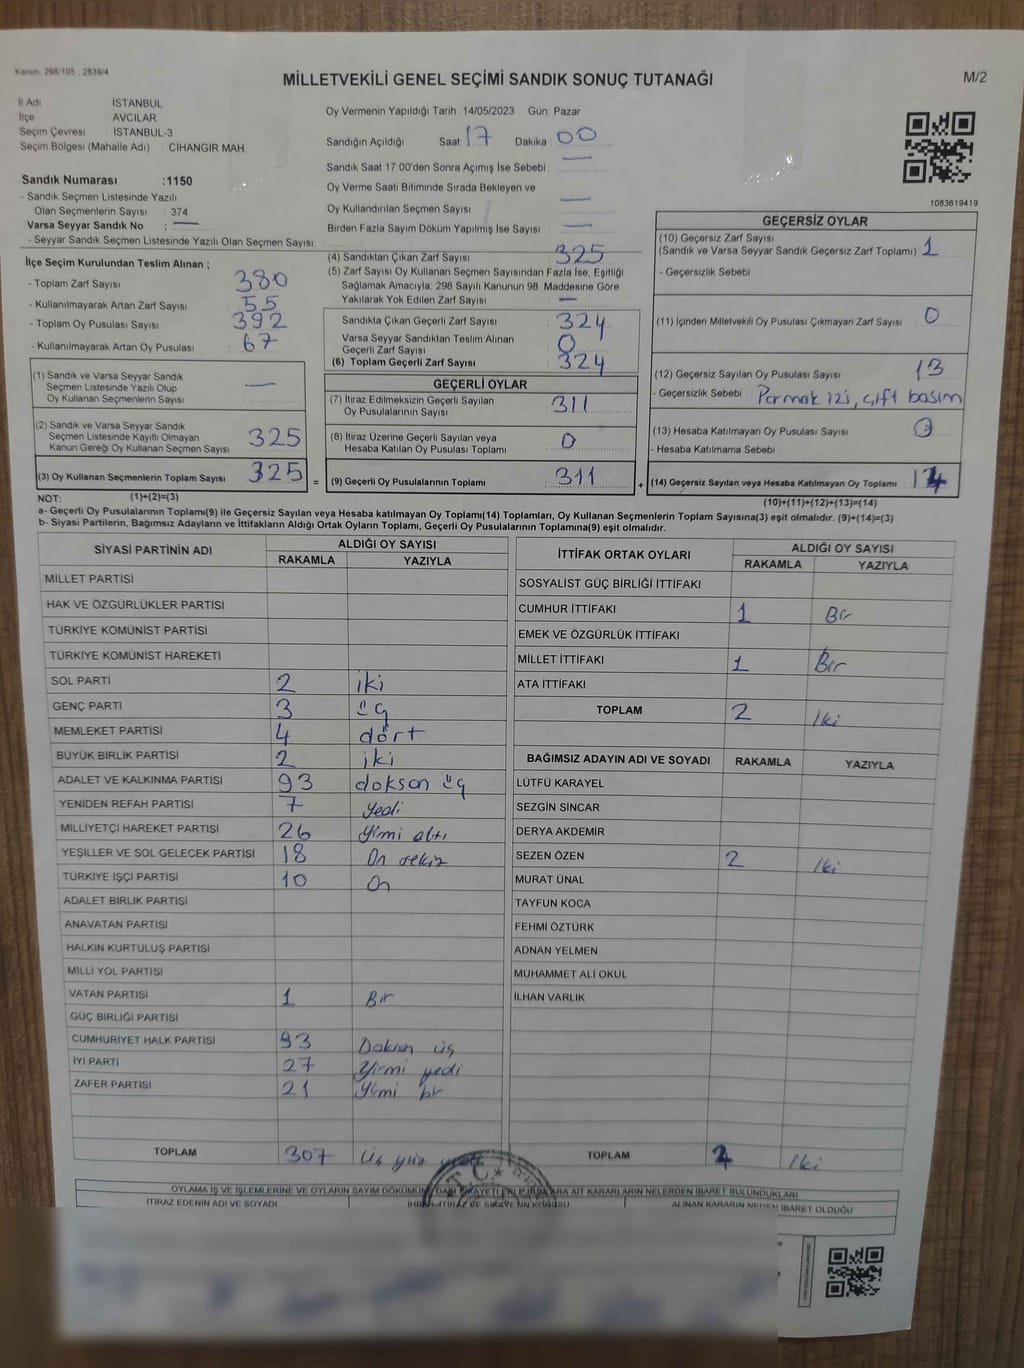 Kanun: 298/105 , 2839/4
MİLLETVEKİLİ GENEL SEÇİMİ SANDIK SONUÇ TUTANAĞI
M/2
İl Adı İSTANBUL
İlçe AVCILAR
Seçim Çevresi : İSTANBUL-3
Seçim Bölgesi (Mahalle Adı) : CİHANGİR MAH.
Sandık Numarası :1150
- Sandık Seçmen Listesinde Yazılı
Olan Seçmenlerin Sayısı : 374
Varsa Seyyar Sandık No : —
- Seyyar Sandık Seçmen Listesinde Yazılı Olan Seçmen Sayısı:
Oy Vermenin Yapıldığı Tarih :14/05/2023 Gün: Pazar
Sandığın Açıldığı Saat: 17 Dakika : 00
Sandık Saat 17:00'den Sonra Açımış İse Sebebi : —
Oy Verme Saati Bitiminde Sırada Bekleyen ve
Oy Kullandırılan Seçmen Sayısı : —
Birden Fazla Sayım Döküm Yapılmış İse Sayısı : —
1083619419
İlçe Seçim Kurulundan Teslim Alınan ;
- Toplam Zarf Sayısı : 380
- Kullanılmayarak Artan Zarf Sayısı : 55
- Toplam Oy Pusulası Sayısı : 392
- Kullanılmayarak Artan Oy Pusulası : 67
(1) Sandık ve Varsa Seyyar Sandık
Seçmen Listesinde Yazılı Olup
Oy Kullanan Seçmenlerin Sayısı : —
(2) Sandık ve Varsa Seyyar Sandık
Seçmen Listesinde Kayıtlı Olmayan
Kanun Gereği Oy Kullanan Seçmen Sayısı : 325
(3) Oy Kullanan Seçmenlerin Toplam Sayısı : 325 =
(4) Sandıktan Çıkan Zarf Sayısı : 325
(5) Zarf Sayısı Oy Kullanan Seçmen Sayısından Fazla İse, Eşitliği
Sağlamak Amacıyla; 298 Sayılı Kanunun 98. Maddesine Göre
Yakılarak Yok Edilen Zarf Sayısı : —
Sandıkta Çıkan Geçerli Zarf Sayısı : 324
Varsa Seyyar Sandıktan Teslim Alınan
Geçerli Zarf Sayısı : 0
(6) Toplam Geçerli Zarf Sayısı : 324
GEÇERLİ OYLAR
(7) İtiraz Edilmeksizin Geçerli Sayılan
Oy Pusulalarının Sayısı : 311
(8) İtiraz Üzerine Geçerli Sayılan veya
Hesaba Katılan Oy Pusulası Toplamı : 0
(9) Geçerli Oy Pusulalarının Toplamı : 311 +
GEÇERSİZ OYLAR
(10) Geçersiz Zarf Sayısı
(Sandık ve Varsa Seyyar Sandık Geçersiz Zarf Toplamı) : 1
- Geçersizlik Sebebi :
(11) İçinden Milletvekili Oy Pusulası Çıkmayan Zarf Sayısı : 0
(12) Geçersiz Sayılan Oy Pusulası Sayısı : 13
- Geçersizlik Sebebi : Parmak izi, çift basım
(13) Hesaba Katılmayan Oy Pusulası Sayısı : 0
- Hesaba Katılmama Sebebi :
(14) Geçersiz Sayılan veya Hesaba Katılmayan Oy Toplamı : 14
NOT: (1)+(2)=(3)
(10)+(11)+(12)+(13)=(14)
a- Geçerli Oy Pusulalarının Toplamı(9) ile Geçersiz Sayılan veya Hesaba katılmayan Oy Toplamı(14) Toplamları, Oy Kullanan Seçmenlerin Toplam Sayısına(3) eşit olmalıdır. (9)+(14)=(3)
b- Siyasi Partilerin, Bağımsız Adayların ve İttifakların Aldığı Ortak Oyların Toplamı, Geçerli Oy Pusulalarının Toplamına(9) eşit olmalıdır.
SİYASİ PARTİNİN ADI ALDIĞI OY SAYISI
RAKAMLA YAZIYLA
MİLLET PARTİSİ
HAK VE ÖZGÜRLÜKLER PARTİSİ
TÜRKİYE KOMÜNİST PARTİSİ
TÜRKİYE KOMÜNİST HAREKETİ
SOL PARTİ 2 iki
GENÇ PARTİ 3 üç
MEMLEKET PARTİSİ 4 dört
BÜYÜK BİRLİK PARTİSİ 2 iki
ADALET VE KALKINMA PARTİSİ 93 doksan üç
YENİDEN REFAH PARTİSİ 7 yedi
MİLLİYETÇİ HAREKET PARTİSİ 26 yirmi altı
YEŞİLLER VE SOL GELECEK PARTİSİ 18 On sekiz
TÜRKİYE İŞÇİ PARTİSİ 10 On
ADALET BİRLİK PARTİSİ
ANAVATAN PARTİSİ
HALKIN KURTULUŞ PARTİSİ
MİLLİ YOL PARTİSİ
VATAN PARTİSİ 1 Bir
GÜÇ BİRLİĞİ PARTİSİ
CUMHURİYET HALK PARTİSİ 93 Doksan üç
İYİ PARTİ 27 Yirmi yedi
ZAFER PARTİSİ 21 Yirmi bir
TOPLAM 307 Üç yüz
İTTİFAK ORTAK OYLARI ALDIĞI OY SAYISI
RAKAMLA YAZIYLA
SOSYALİST GÜÇ BİRLİĞİ İTTİFAKI
CUMHUR İTTİFAKI 1 Bir
EMEK VE ÖZGÜRLÜK İTTİFAKI
MİLLET İTTİFAKI 1 Bir
ATA İTTİFAKI
TOPLAM 2 Iki
BAĞIMSIZ ADAYIN ADI VE SOYADI RAKAMLA YAZIYLA
LÜTFÜ KARAYEL
SEZGİN SİNCAR
DERYA AKDEMİR
SEZEN ÖZEN 2 Iki
MURAT ÜNAL
TAYFUN KOCA
FEHMİ ÖZTÜRK
ADNAN YELMEN
MUHAMMET ALİ OKUL
İLHAN VARLIK
TOPLAM 2 Iki
T.C.
OYLAMA İŞ VE İŞLEMLERİNE VE OYLARIN SAYIM DÖKÜMÜNE DAİR ŞİKAYETLERLE BUNLARA AİT KARARLARIN NELERDEN İBARET BULUNDUKLARI
İTİRAZ EDENİN ADI VE SOYADI
ALINAN KARARIN NEDEN İBARET OLDUĞU